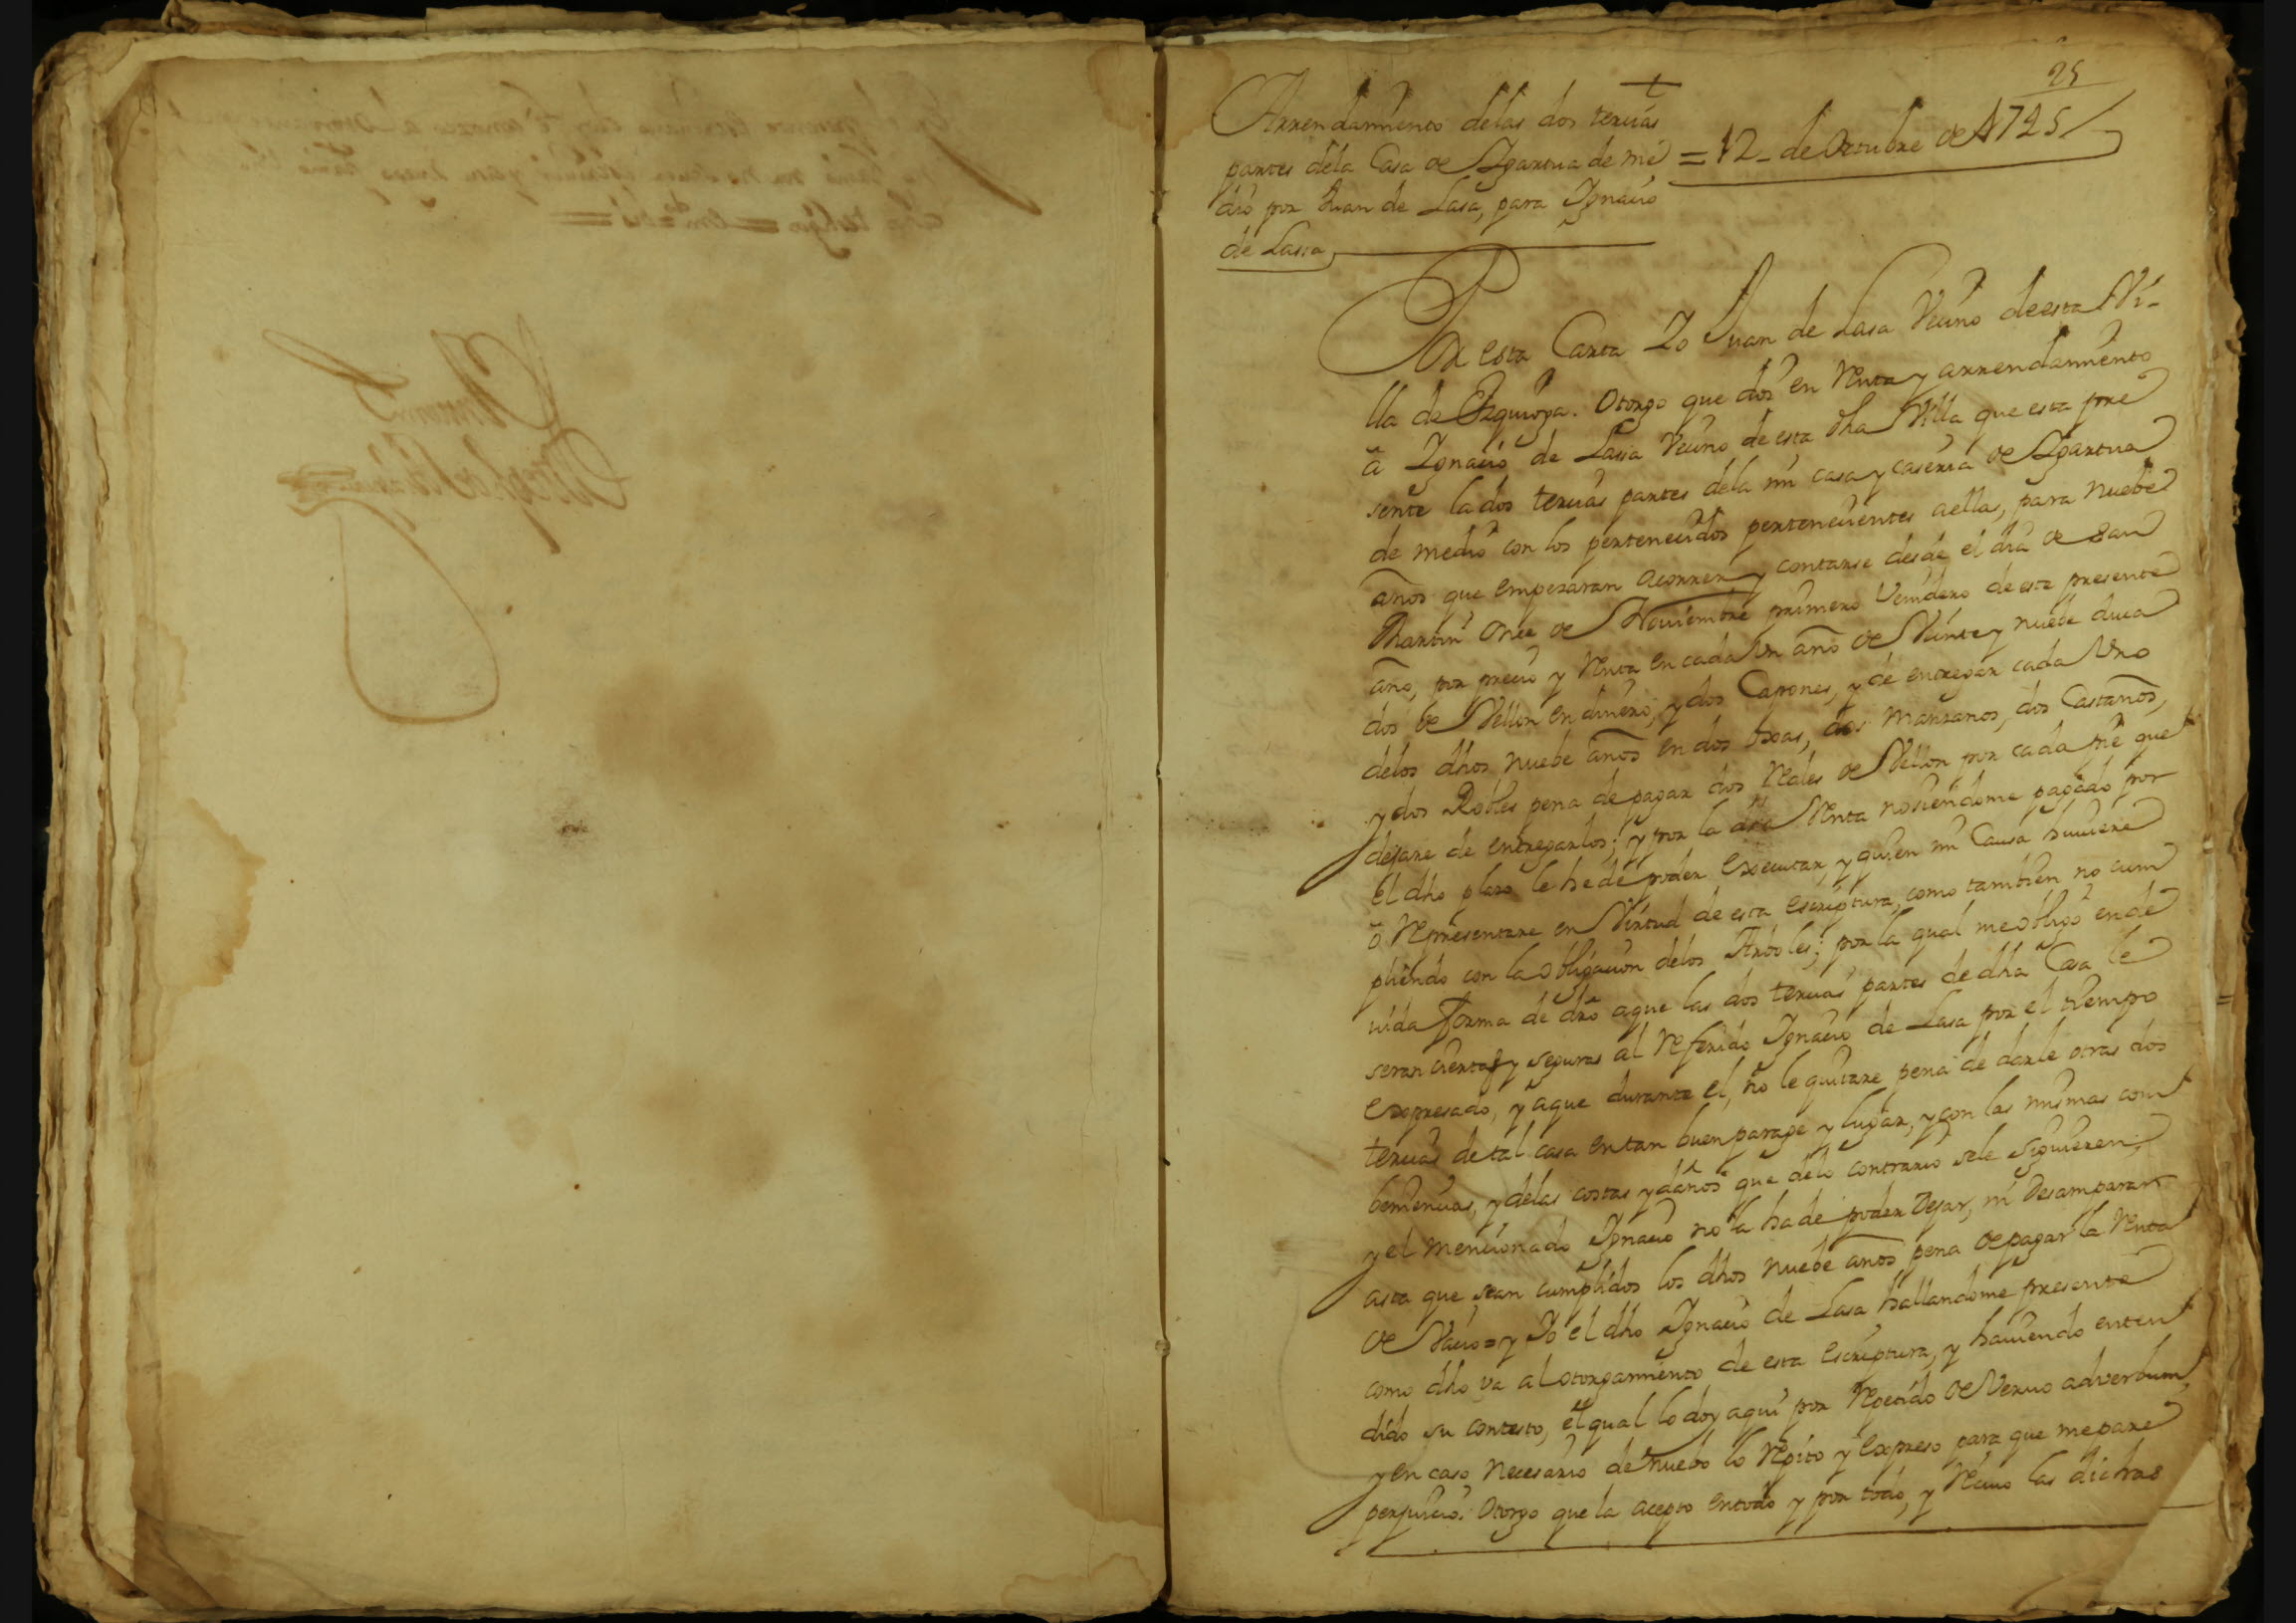 25
Arrendamiento delas dos tercias
partes dela Casa de Ygartua de me
dio por Juan de Lasa, para Ygnacio
de Lassa
= 12_ de Octubre de 1725
Por esta Carta Yo Juan de Lasa Vecino de esta Vi-
lla de Ezquioga. Otorgo que doi en Renta y arrendamiento
â Ygnacio de Lassa Vecino de esta dha Villa que esta pre
sente la dos tercias partes dela mi casa y caseria de Ygartua
de medio con los pertenecidos pertenecientes aellas, para nuebe
años que empezaran acorrer y contarse desde el dia de San
Martin Once de Noviembre primero Venidero de este presente
año, por precio y Renta en cada Un año de Veinte y nuebe duca
dos de Vellon en dinero, y dos Capones, y de entregar cada Uno
delos dhos nuebe años en dos oxas, dos Manzanos, dos Castaños,
y dos Robles pena de pagar dos Reales de Vellon por cada pie que
dejare de entregarlos; y por la dha Renta no siendome pagado por
el dho plazo le he de poder executar, y quien mi Causa huuiere
ô Representare en Virtud de esta escriptura, como tambien no cum
pliendo con la obligacion delos Arboles; por la qual me obligo en de
uida forma de dro aque las dos tercias partes de dha Casa le
seran ciertas y seguras al Referido Ygnacio de Lasa por el tiempo
expresado, y aque durante el, no le quitare pena de darle otras dos
tercias de tal casa en tan buen parage y lugar, y con las mismas com
beniencias, y delas costas y daños que delo contrario sele siguieren;
y el mencionado Ygnacio no la ha de poder Dejar, ni Desamparar
asta que sean cumplidos los dhos nuebe años pena de pagar la Renta
de Vacio = y Yo el dho Ygnacio de Lasa hallandome presente
como dho va al otorgamiento de esta escriptura, y haviendo enten
dido su contesto, el qual lo doy aqui por Repetido de Veruo adverbum,
y en caso necesario de nuebo lo Repito y expreso para que me pare
perjuicio. Otorgo que la acepto en todo y por todo, y Reciuo las dichas